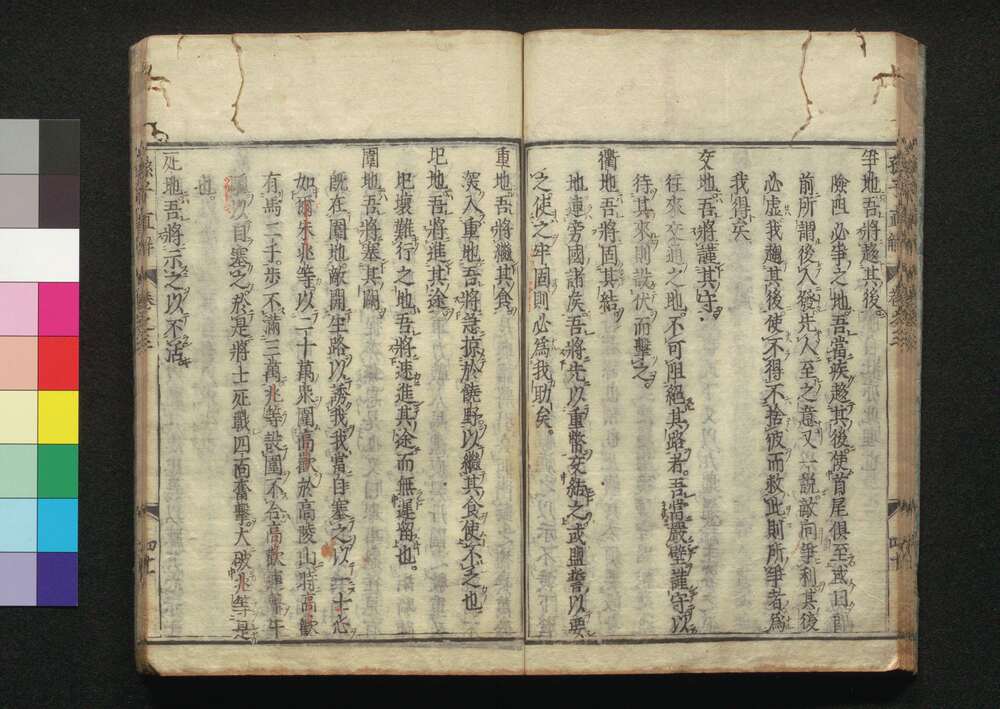 爭地吾將趨其後
險固必爭之地吾當疾趨其後使首尾俱至或曰即
前所謂後人發先人至之意又一說敵向爭利其後
必虛我趨其後使不得不捨彼而救此則所爭者為
我得矣
交地吾將謹其守
往來交通之地不可阻絕其路者吾當嚴壁謹守以
待其來則設伏而擊之
衢地吾將固其結
地連旁國諸侯吾將先以重幣交結之或盟誓以要
之使之牢固則必為我助矣
重地吾將繼其食
深入重地吾將急掠於饒野以繼其食使不乏也
圮地吾將進其途
圮壞難行之地吾將速進其途而無遲留也
圍地吾將塞其闕
旣在圍地敵開生路以誘我我當自塞之以一士心
如爾朱兆等以二十萬衆圍高歡於高陵山時高歡
有馬二千步不滿三萬兆等設圍不合高歡連繫牛
驢以自塞之於是將士死戰四面奮擊大破兆等是
也
死地吾將示之以不活
孫子直解
卷之三
四十